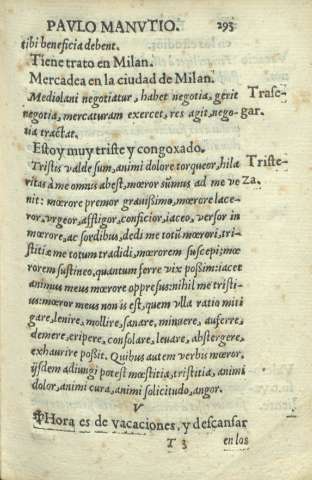 PAVLO MANVTIO. 295
tibi beneficia debent.
Tiene trato en Milan.
Mercadea en la ciudad de Milan.
Mediolani negotiatur, habet negotia, gerit Trafe-
negotia, mercaturam exercet, res agit, nego- gar.
tia tractat.
Estoy muy triste y congoxado.
Tristis valde sum, animi dolore torqueor, hila Triste-
ritas à me omnis abest, mœror sũmus ad me ve za.
nit: mœrore premor grauißimo, mœrore lace-
ror, vrgeor, affligor, conficior, iaceo, versor in
mœrore, ac sordibus, dedi me totũ mœrori, tri-
stitiæ me totum tradidi, mœrorem suscepi; mœ
rorem sustineo, quantum ferre vix poßim: iacet
animus meus mœrore oppresus: nihil me tristi-
us: mœror meus non is est, quem vlla ratio miti
gare, lenire, mollire, sanare, minuere, auferre,
demere, eripere, consolare, leuare, abstergere,
exhaurire poßit. Quibus autem verbis mœror,
ijsdem adiungi potest mœstitia, tristitia, animi
dolor, animi cura, animi solicitudo, angor.
V
Hora es de vacaciones, y descansar
T 3 en los